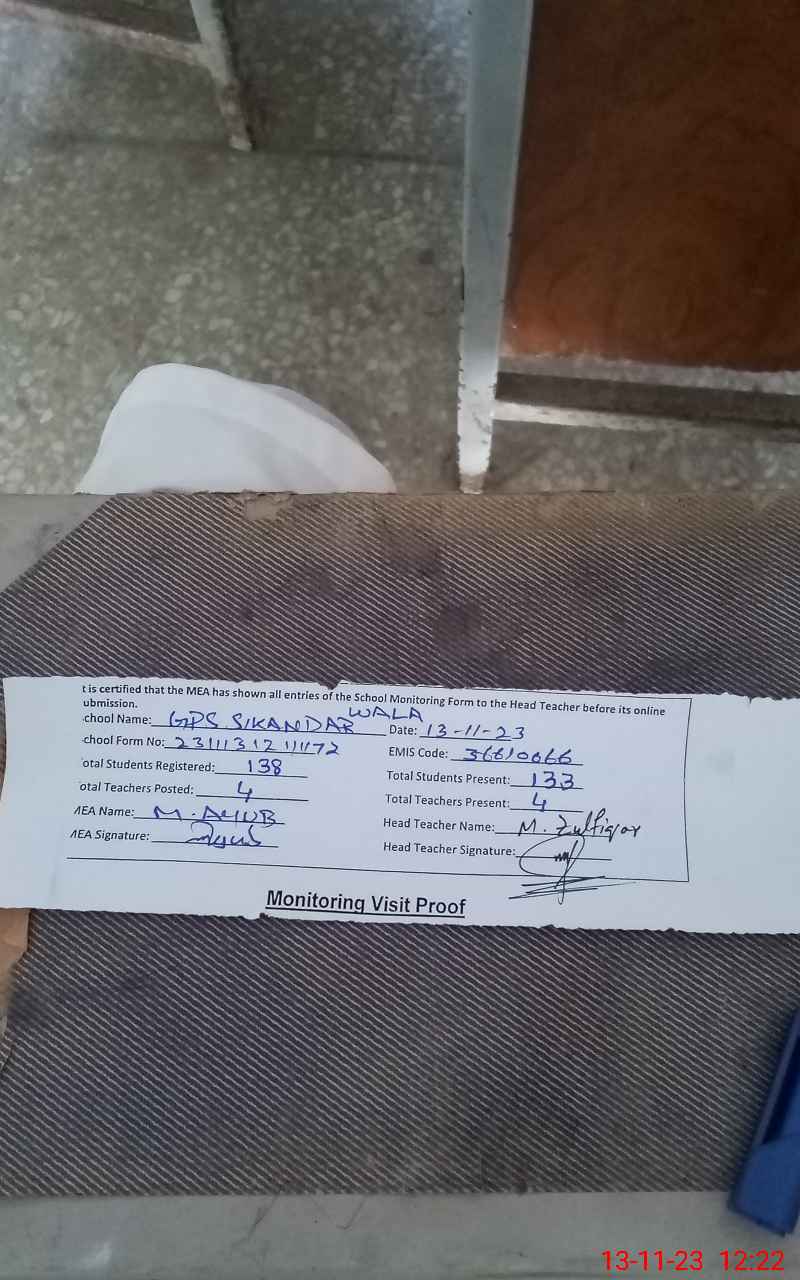 t is certified that the MEA has shown all entries of the School Monitoring Form to the Head Teacher before its online
ubmission.
chool Name: GPS SIKANDAR WALA Date: 13-11-23
chool Form No: 23111312111172 EMIS Code: 36610066
otal Students Registered: 138 Total Students Present: 133
otal Teachers Posted: 4 Total Teachers Present: 4
MEA Name: M. AYUB Head Teacher Name: M. Zulfiqar
MEA Signature: Head Teacher Signature:
Monitoring Visit Proof
13-11-23 12:22